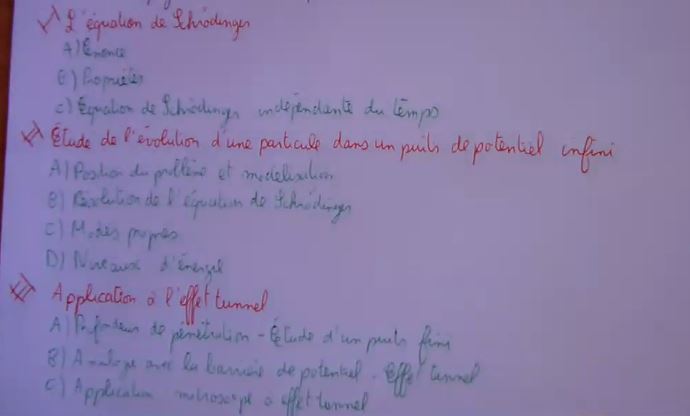 I) L'équation de Schrödinger
A) Énoncé
B) Propriétés
C) Équation de Schrödinger indépendante du temps
II) Étude de l'évolution d'une particule dans un puits de potentiel infini
A) Position du problème et modélisation
B) Résolution de l'équation de Schrödinger
C) Modes propres
D) Niveaux d'énergie
III) Application à l'effet tunnel
A) Profondeur de pénétration - Étude d'un puits fini
B) Analogie avec la barrière de potentiel - Effet tunnel
C) Application microscope à effet tunnel